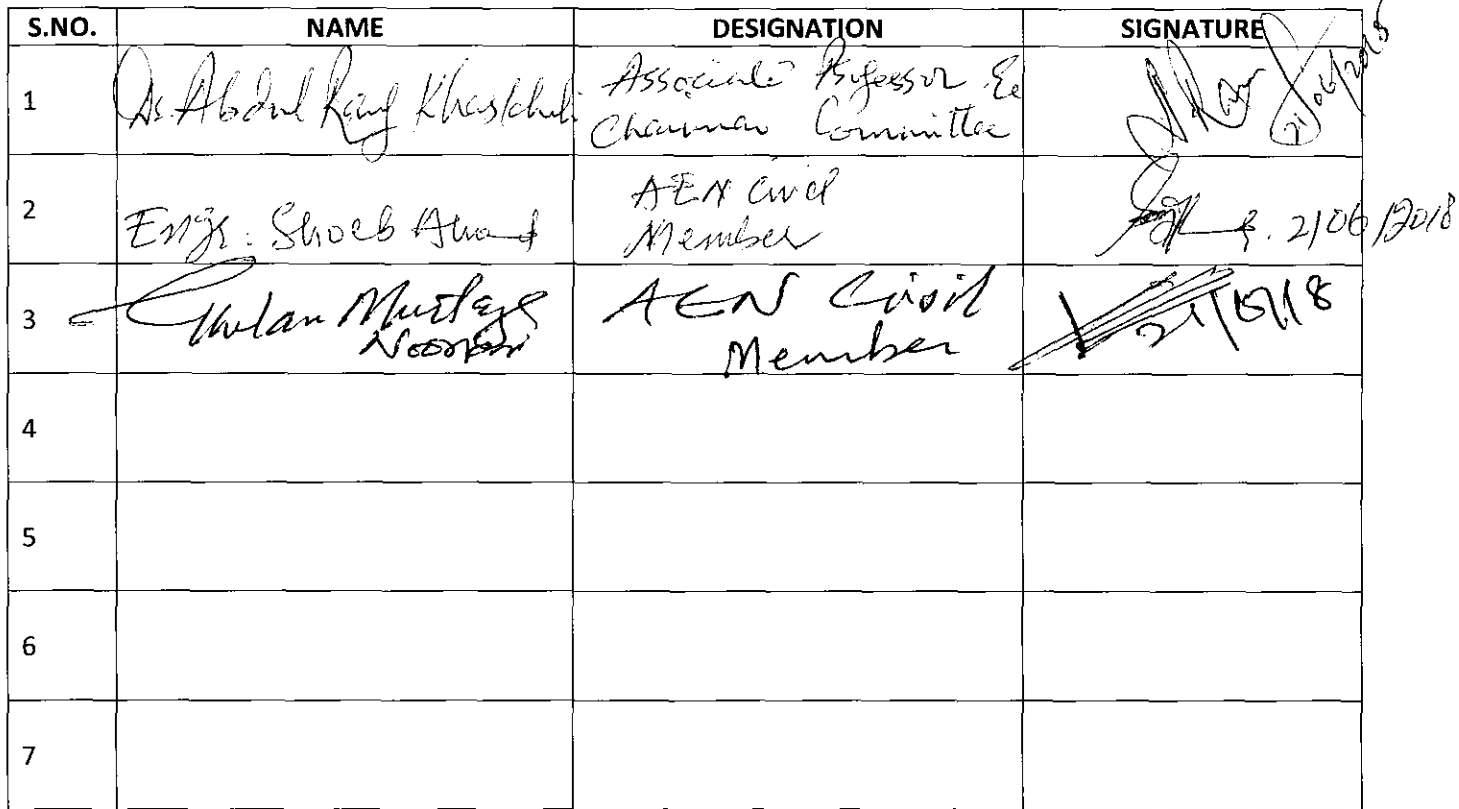 S.NO. NAME DESIGNATION SIGNATURE
1 Dr. Abdul Rauf Khaskheli Associate Professor &
Chairman Committee 21/06/2018
2 Engr: Shoeb Ahmed AEN Civil
Member 21/06/2018
3 Ghulam Murtaza
Noorani AEN Civil
Member
4
5
6
7